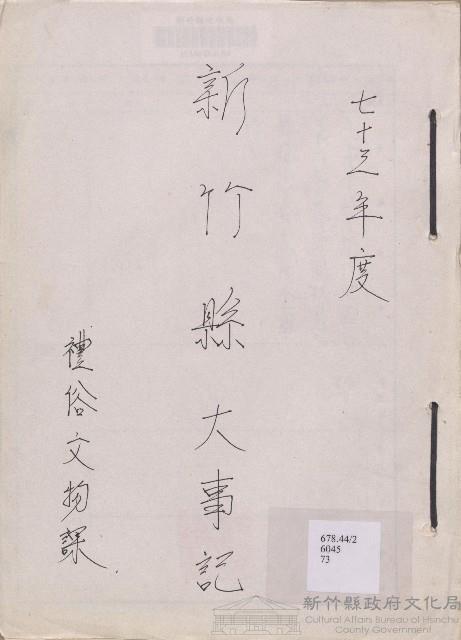 七十三年度
新竹縣大事記
禮俗文物課
678.44/2
6045
73
新竹縣政府文化局
Cultural Affairs Bureau of Hsinchu
County Government